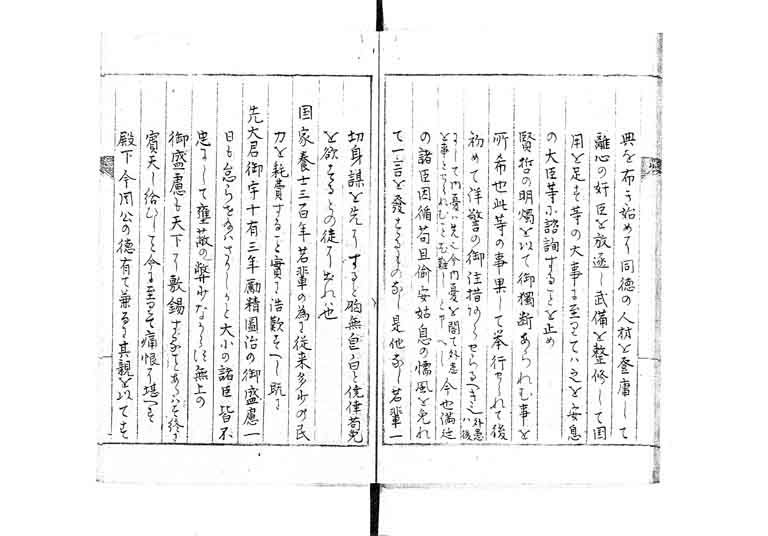 典を布き始めて同徳の人材を登庸して
離心の奸臣を放逐し武備を整修して国
用を足す等の大事に至ては之を安息
の大臣等に諮詢することを止め
賢哲の明燭を以て御獨断あられむ事を
所希也此等の事果して挙行せられて後
初めて洋警の御注措あらせらるべき也
外患ハ後
にして内憂ハ先也今内憂を閣て外患
を事とせられむこと難しとすべし今也満廷
の諸臣因循苟且偸安姑息の懦風を免れ
て一言を発するものなし是他なし若輩一
切身謀を先にするを胸無皂白を僥倖苟免
を欲するの徒にあれハ也
国家養士三百年若輩の為に従来多少の民
力を耗費すること實に浩歎すへし既に
先大君御宇十有三年勵精圖治の御盛慮一
日も怠らせたまハさりしかと大小の諸臣皆不
忠にして壅蔽の弊少なからす無上の
御盛慮も天下に敷錫することあらハせす終に
賓天し給ひしこと今に至るまて痛恨に堪へす
殿下今周公の徳有て兼るに其親を以てす